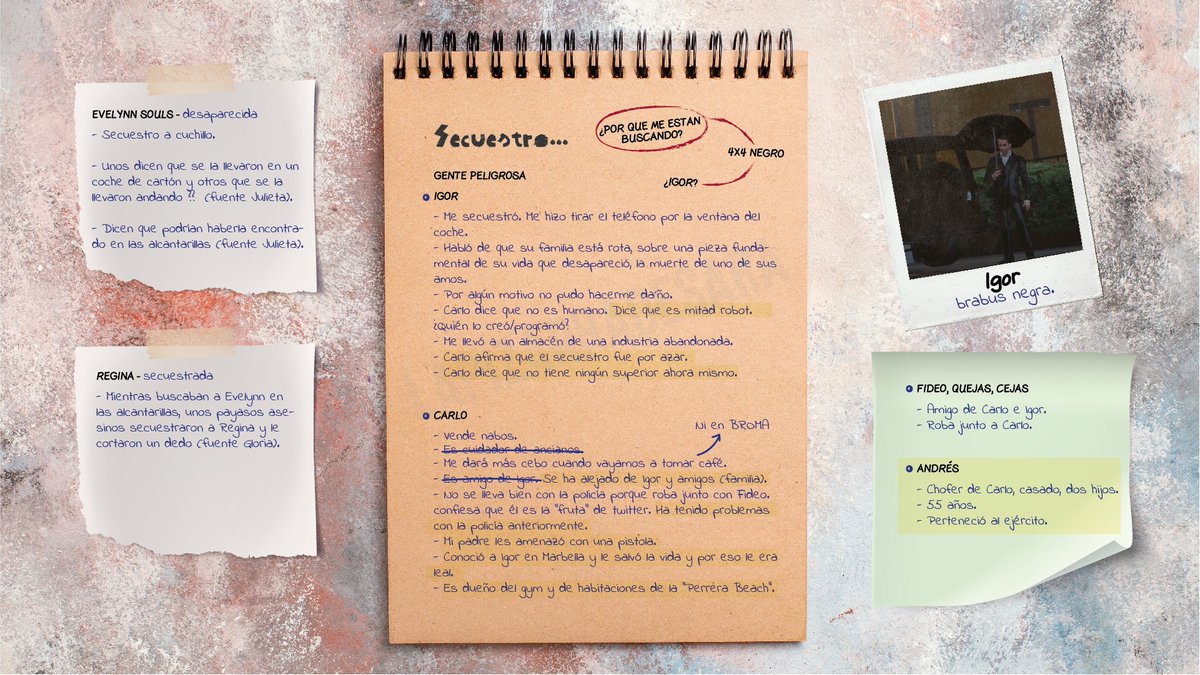 EVELYNN SOULS - desaparecida
- Secuestro a cuchillo.
- Unos dicen que se la llevaron en un
coche de cartón y otros que se la
llevaron andando ?? (fuente Julieta).
- Dicen que podrían haberla encontra-
do en las alcantarillas (fuente Julieta).
REGINA - secuestrada
- Mientras buscaban a Evelynn en
las alcantarillas, unos payasos ase-
sinos secuestraron a Regina y le
cortaron un dedo (fuente Gloria).
Secuestro...
¿POR QUE ME ESTAN
BUSCANDO?
4X4 NEGRO
¿IGOR?
GENTE PELIGROSA
IGOR
- Me secuestró. Me hizo tirar el teléfono por la ventana del
coche.
- Habló de que su familia está rota, sobre una pieza funda-
mental de su vida que desapareció, la muerte de uno de sus
amos.
- Por algún motivo no pudo hacerme daño.
- Carlo dice que no es humano. Dice que es mitad robot.
¿Quién lo creó/programó?
- Me llevó a un almacén de una industria abandonada.
- Carlo afirma que el secuestro fue por azar.
- Carlo dice que no tiene ningún superior ahora mismo.
CARLO
Ni en BROMA
- Vende nabos.
- Es cuidador de ancianos.
- Me dará más cebo cuando vayamos a tomar café.
- Es amigo de Igor. Se ha alejado de Igor y amigos (familia).
- No se lleva bien con la policía porque roba junto con Fideo.
confiesa que él es la "fruta" de twitter. Ha tenido problemas
con la policía anteriormente.
- Mi padre les amenazó con una pistola.
- Conoció a Igor en Marbella y le salvó la vida y por eso le era
leal.
- Es dueño del gym y de habitaciones de la "Perrera Beach".
Igor
brabus negra.
FIDEO, QUEJAS, CEJAS
- Amigo de Carlo e Igor.
- Roba junto a Carlo.
ANDRÉS
- Chofer de Carlo, casado, dos hijos.
- 55 años.
- Perteneció al ejército.